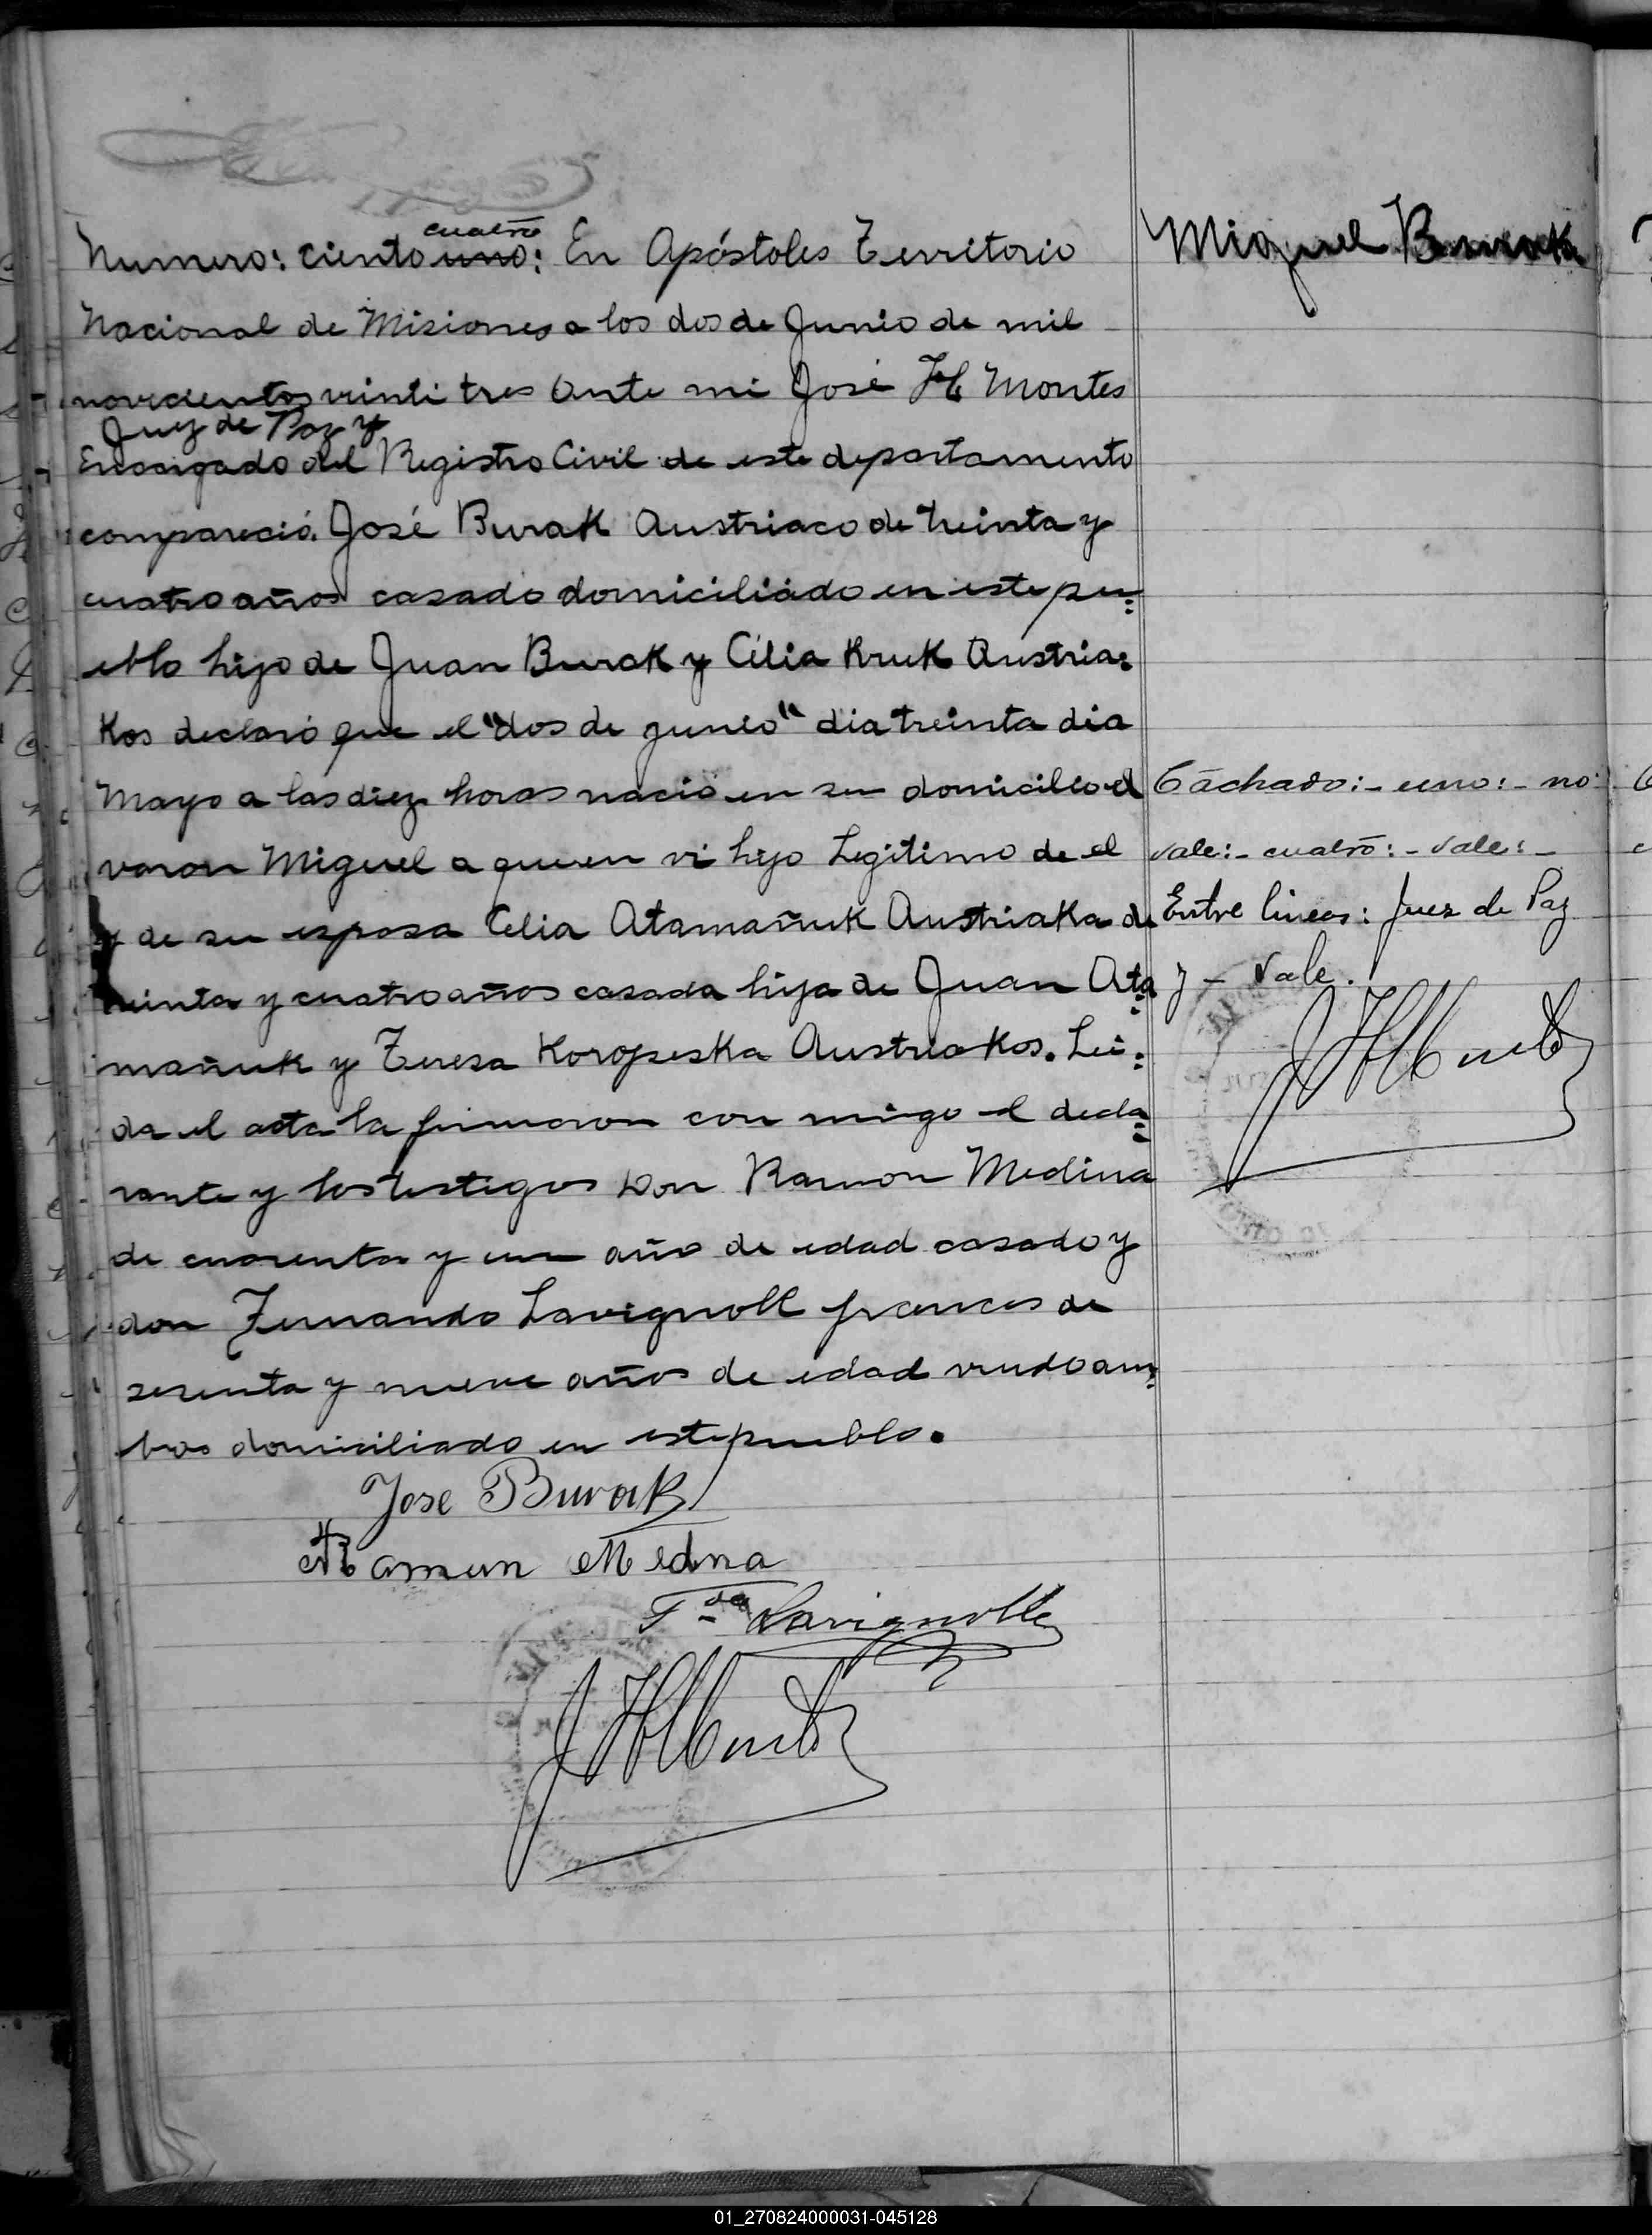 cuatro
Numero: ciento uno: En Apóstoles Territorio
Nacional de Misiones a los dos de Junio de mil
novecientos vinti tres ante mi José H Montes
Juez de Paz y
Encargado del Registro Civil de este departamento
compareció José Burak Austriaco de treinta y
cuatro años casado domiciliado en este pu=
eblo hijo de Juan Burak y Cilia Kruk Austria=
kos declaró que el "dos de junio" dia treinta dia
Mayo a las diez horas nació en su domicilio el
varon Miguel a quien vi hijo Legitimo de el
y de su esposa Celia Atamañuk Austriaka de
treinta y cuatro años casada hija de Juan Ata=
mañuk y Teresa Koropeska Austriakos. Lei=
da el acta la firmaron con migo el decla=
rante y los testigos Don Ramon Medina
de cuarenta y un año de edad casado y
don Fernando Lavignoll frances de
sesenta y nueve años de edad viudo am=
bos domiciliado en este pueblo.
Jose Burak
Ramun Medna
F= do Lavignolle
J H Montes
Miguel Burak
Tachado:- uno:- no
vale:- cuatro:- vale:-
Entre lineas: Juez de Paz
y - Vale.
J H Montes
01_270824000031-045128